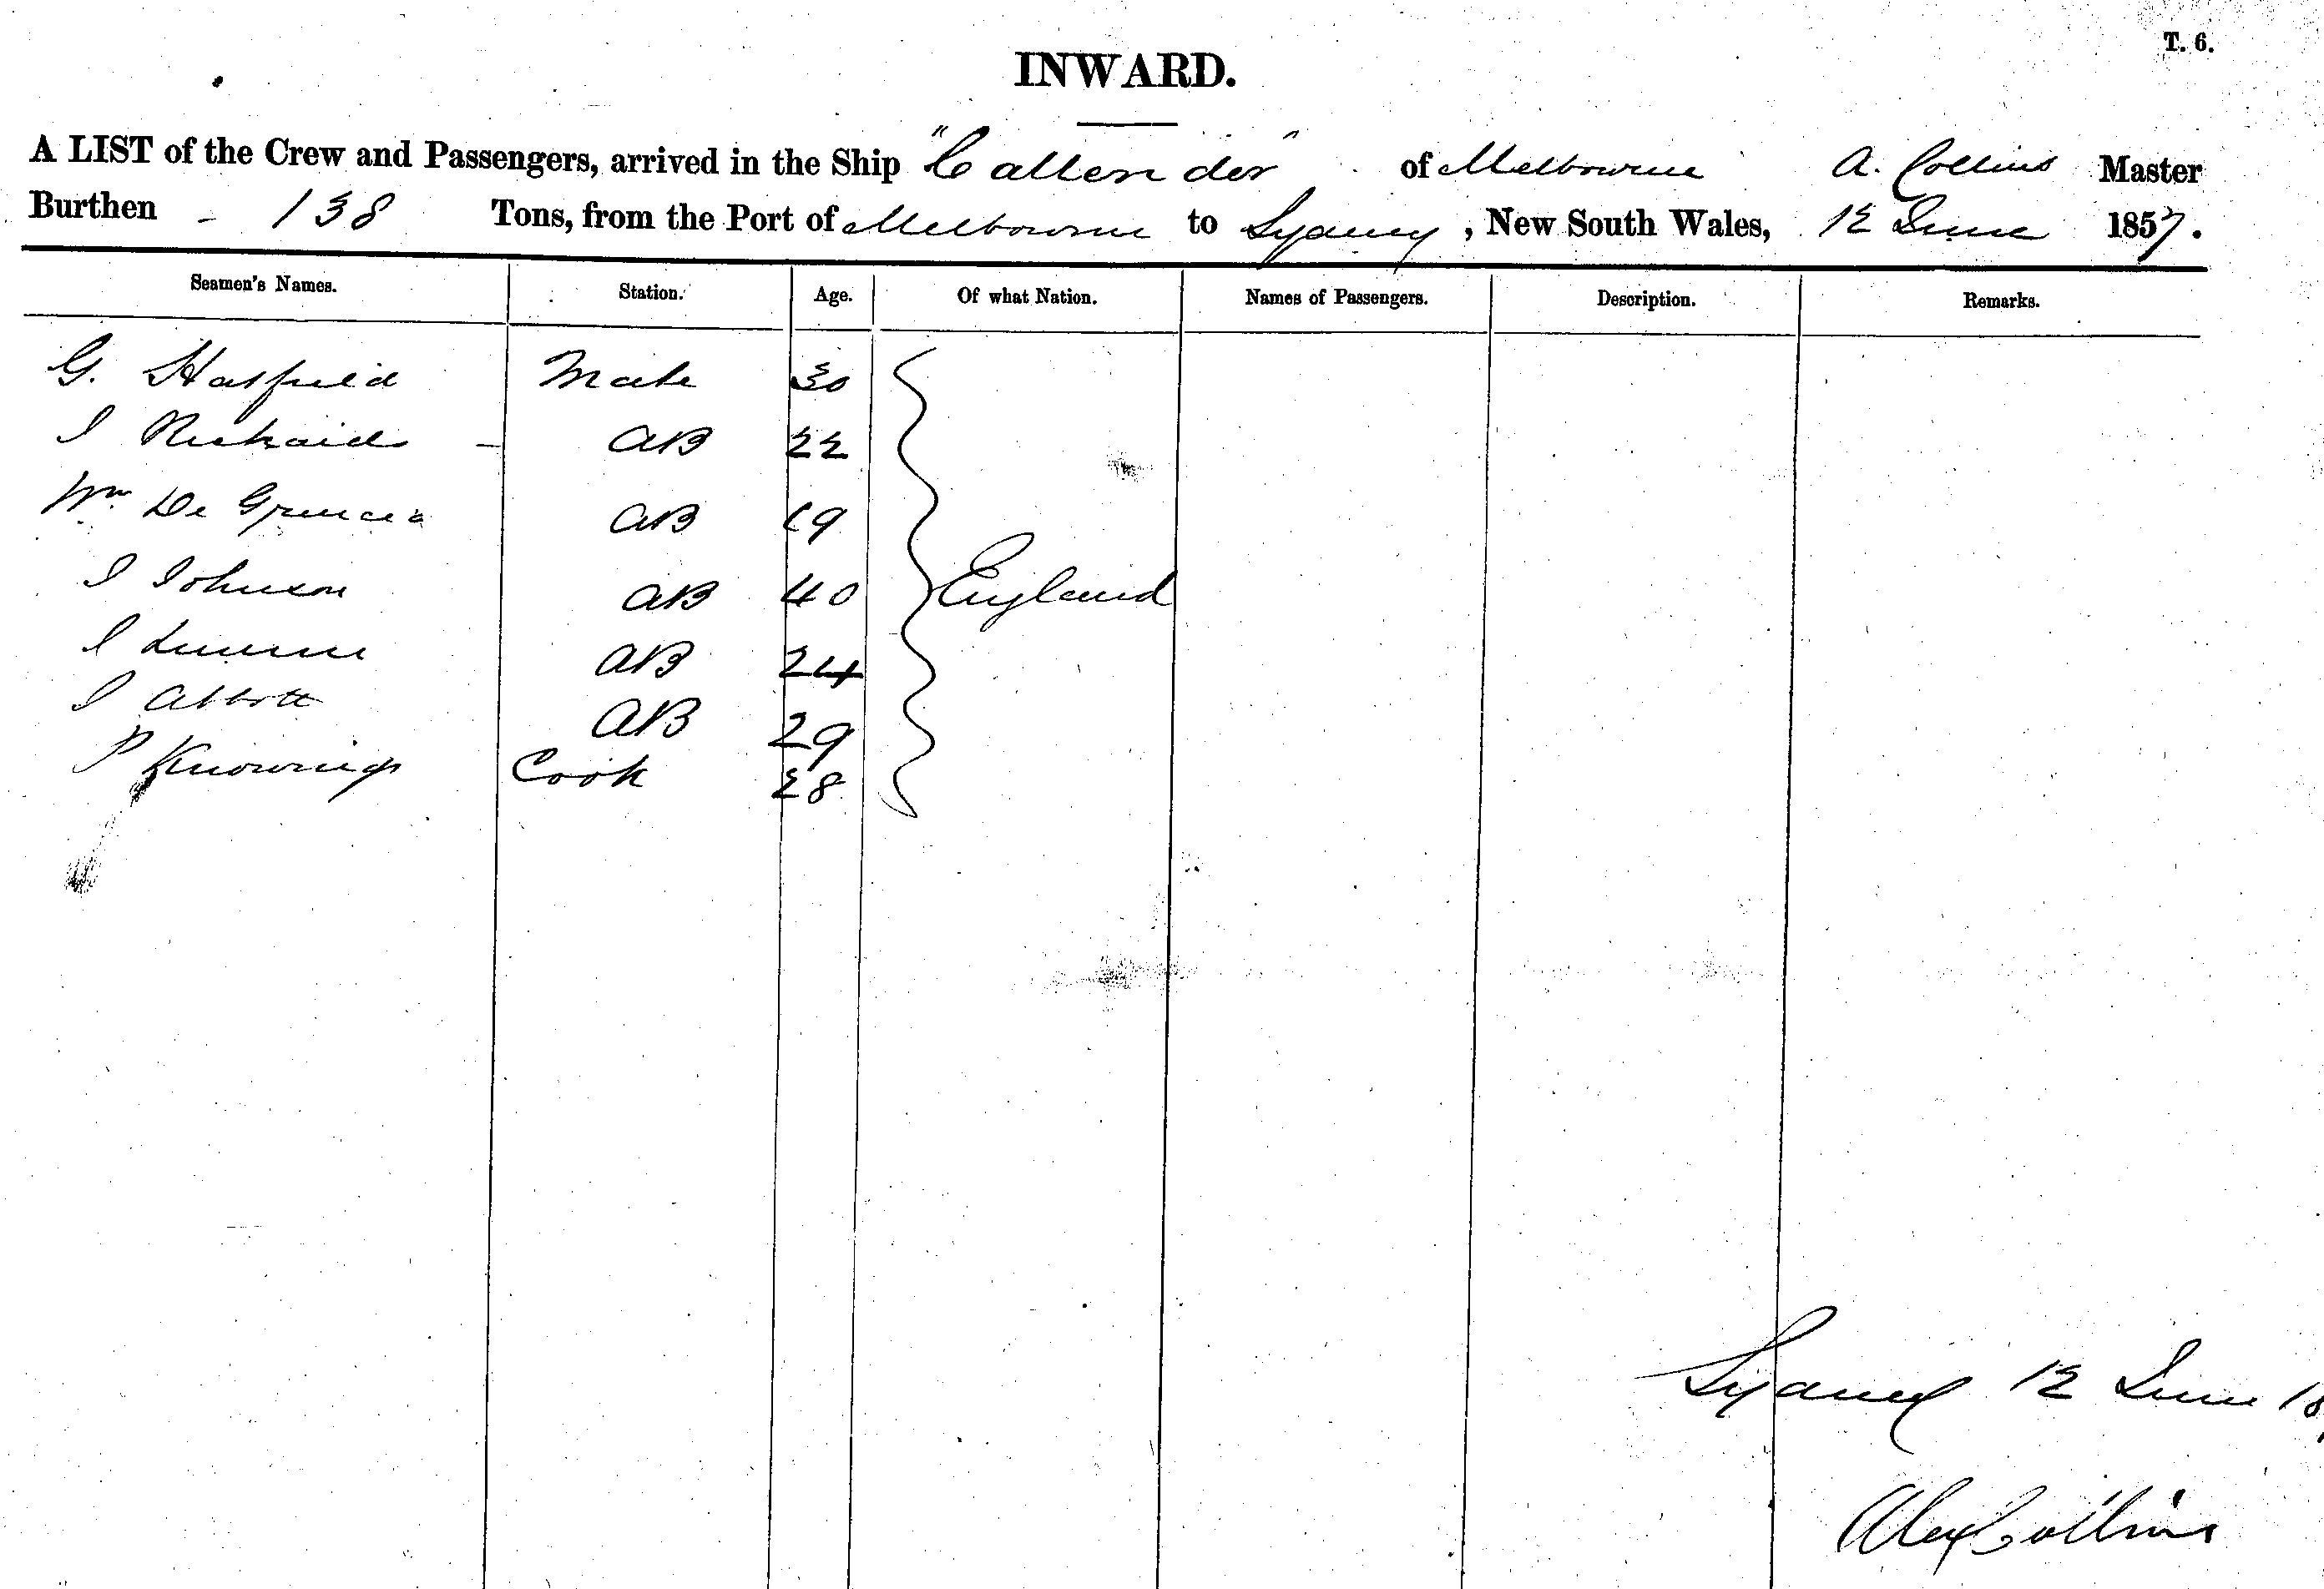 T. 6.
INWARD.
A LIST of the Crew and Passengers, arrived in the Ship "Callender" of Melbourne A. Collins Master
Burthen - 138 Tons, from the Port of Melbourne to Sydney, New South Wales, 12 June 1857.
Seamen's Names. Station. Age. Of what Nation. Names of Passengers. Description. Remarks.
G. Hatfield Mate 30
J Richards - AB 22
Wm De AB 19
J Johnson AB 40 England
J AB 24
J Abbott AB 29
P Cook 28
Sydney 12 June 18
Alex Collins